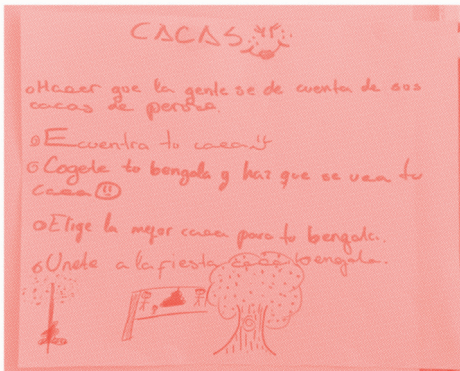 CACAS
Hacer que la gente se de cuenta de sus
cacas de perro
Ecuentra tu caca
Cogete tu bengala y haz que se vea tu
caca
Elige la mejor caca para tu bengala.
Unete a la fiesta caca bengala.